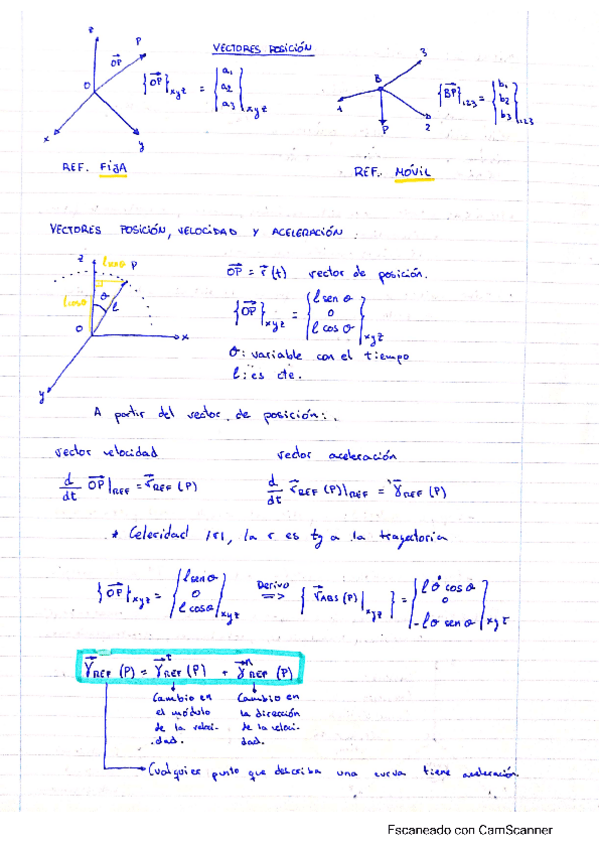 VECTORES POSICIÓN
z
P
OP
O
x
y
{OP}xyz = {a1 a2 a3}xyz
3
B
1
P
2
{BP}123 = {b1 b2 b3}123
REF. FIJA
REF. MÓVIL
VECTORES POSICIÓN, VELOCIDAD Y ACELERACIÓN:
z
l senθ
P
l cosθ
θ
l
O
x
y
OP = r(t) vector de posición.
{OP}xyz = {l sen θ 0 l cos θ}xyz
θ: variable con el tiempo
l: es cte.
A partir del vector de posición:
vector velocidad
vector aceleración
d/dt OP|REF = vREF (P)
d/dt vREF (P)|REF = γREF (P)
* Celeridad |v|, la v es tg a la trayectoria
{OP}xyz = {l senθ 0 l cosθ}xyz
Derivo =>
{vABS (P)|xyz} = {l θ̇ cos θ 0 -l θ̇ sen θ}xyz
γREF (P) = γᵗREF (P) + γⁿREF (P)
Cambio en el módulo de la veloci-dad.
Cambio en la dirección de la veloci-dad.
Cualquier punto que describa una curva tiene aceleración.
Escaneado con CamScanner